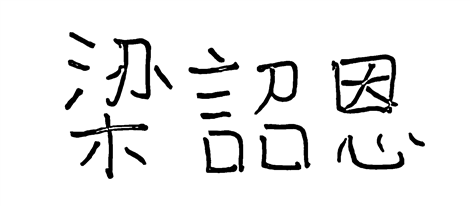 梁詔恩